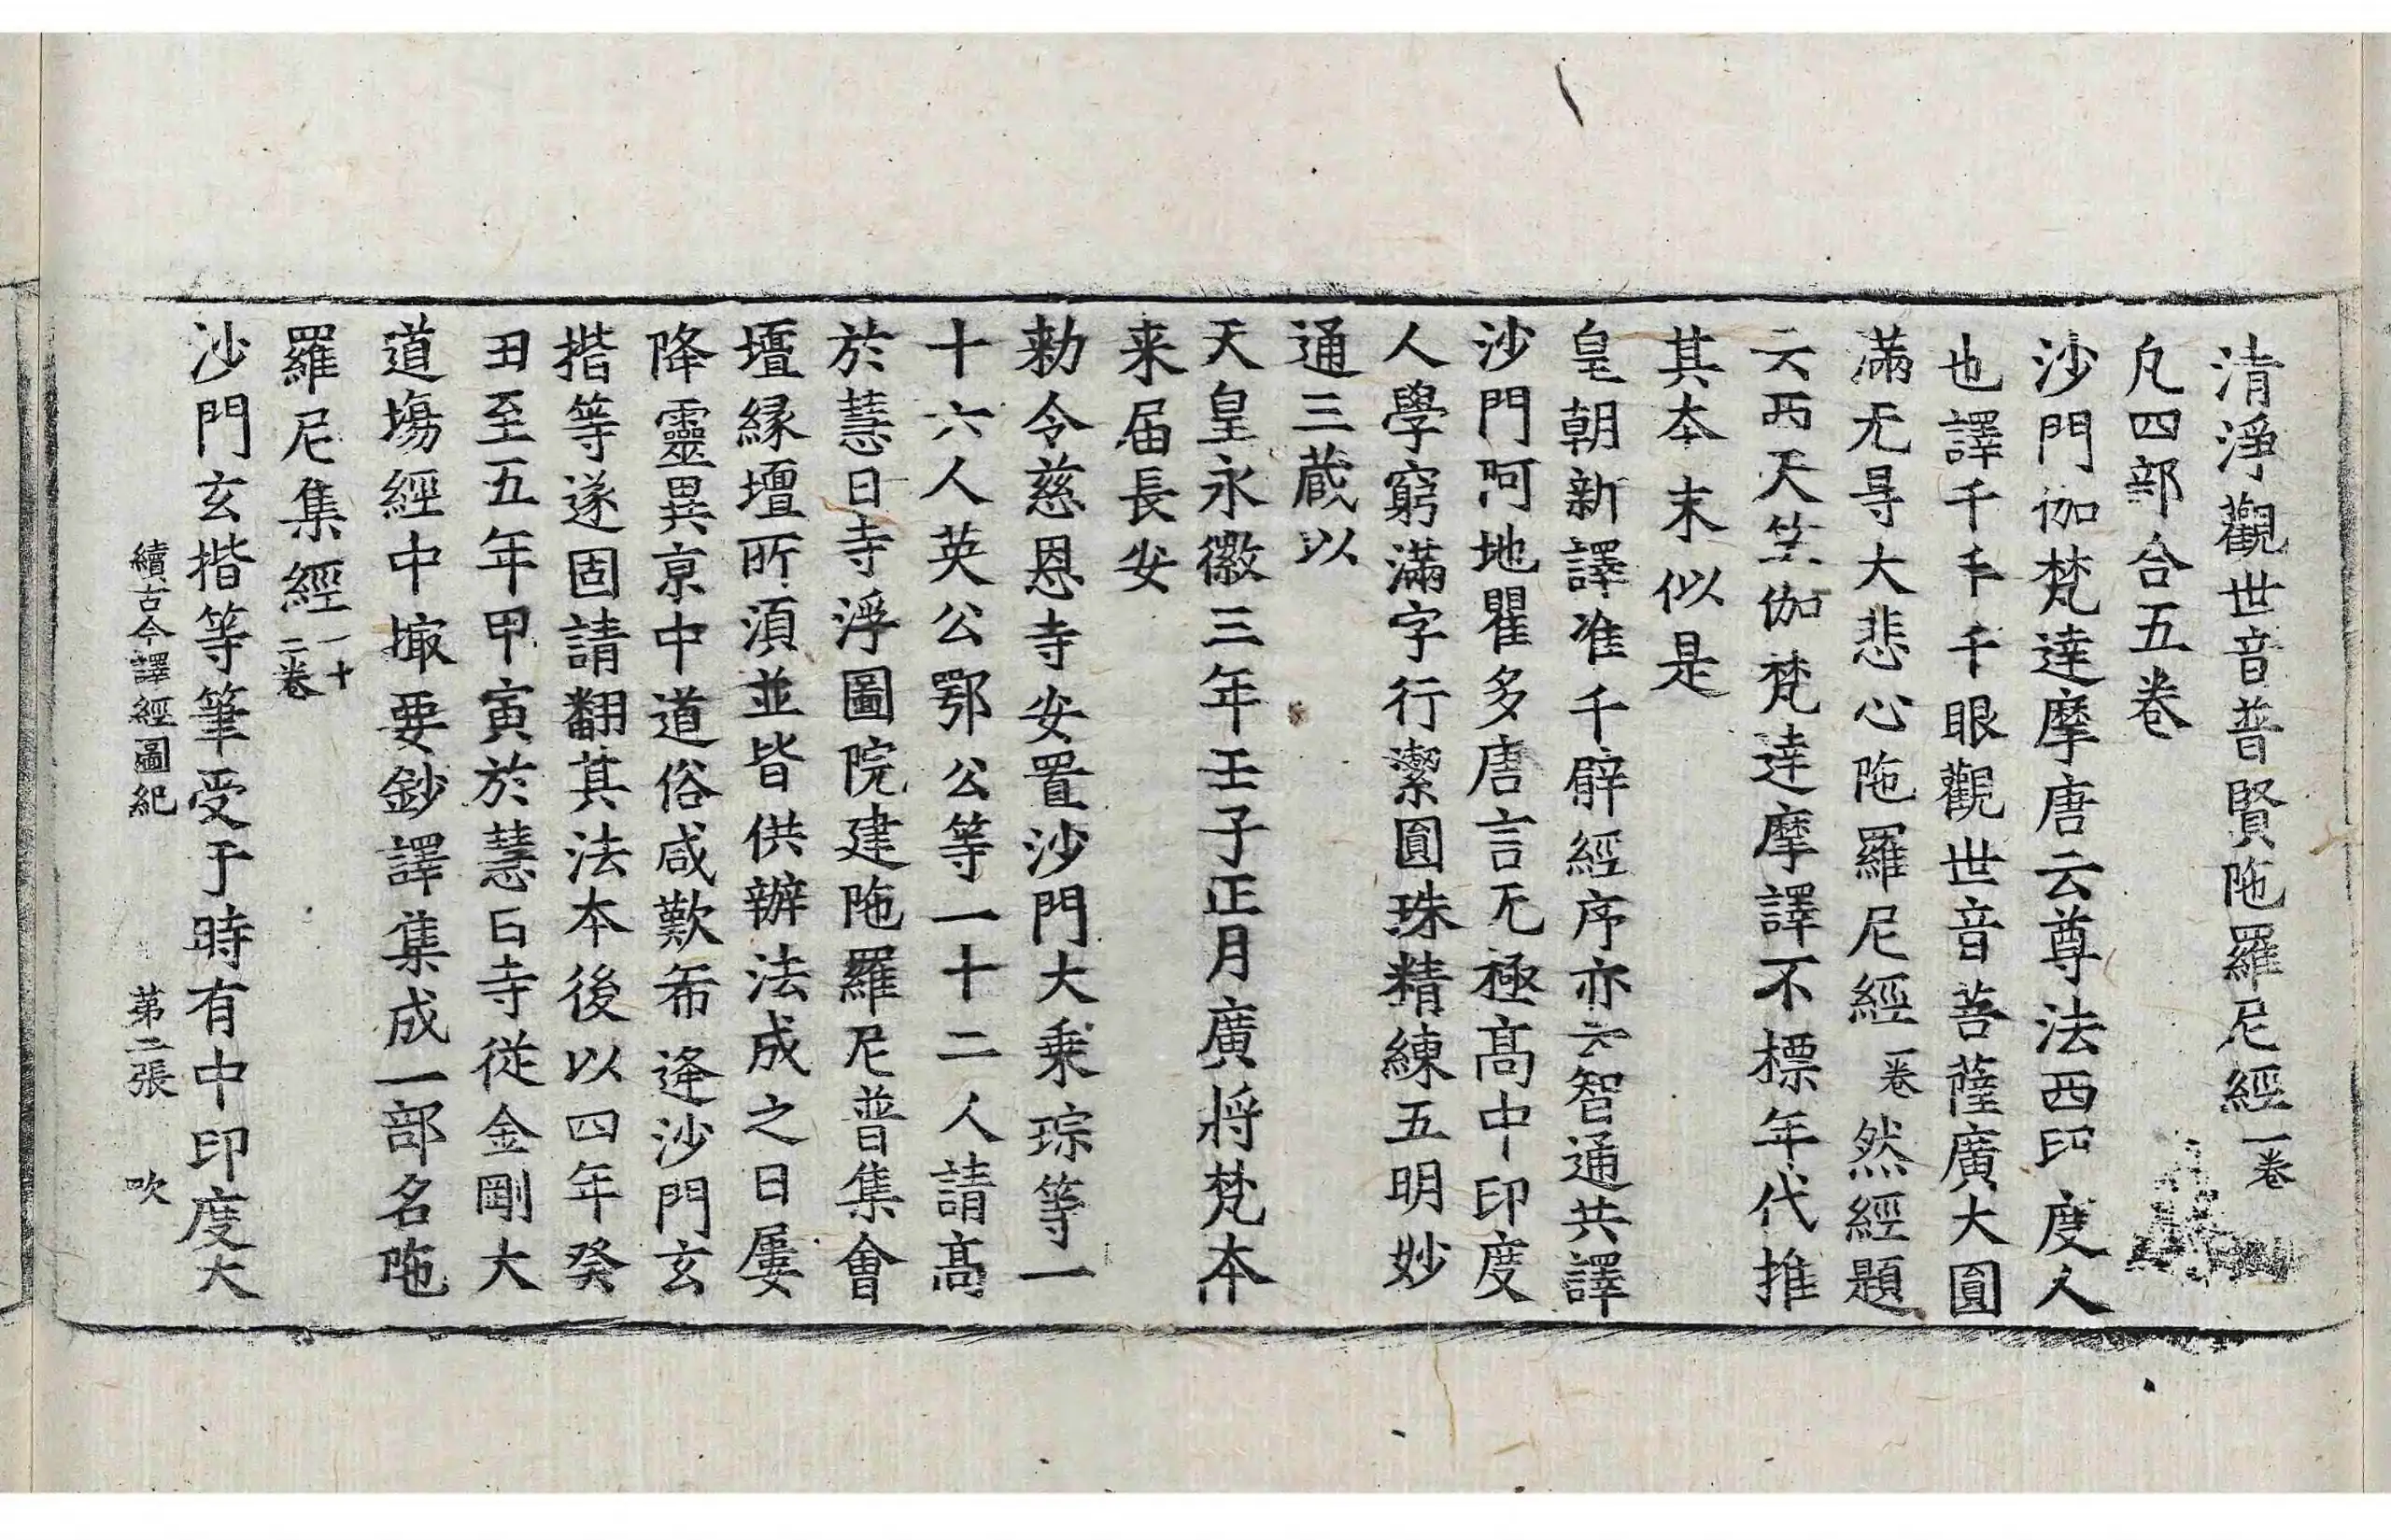 清淨觀世音普賢陁羅尼經一卷
凡四部合五卷
沙門伽梵達摩唐云尊法西印度人
也譯千手千眼觀世音菩薩廣大圓
滿无㝵大悲心陁羅尼經一卷然經題
云西天竺伽梵達摩譯不標年代推
其本末似是
皇朝新譯准千臂經序亦云智通共譯
沙門阿地瞿多唐言无極高中印度
人學窮滿字行潔圓珠精練五明妙
通三藏以
天皇永徽三年壬子正月廣將梵本
来届長安
勑令慈恩寺安置沙門大乗琮等一
十六人英公鄂公等一十二人請高
於慧日寺浮圖院建陁羅尼普集會
壇緣壇所湏並皆供辦法成之日屢
降靈異京中道俗咸歎希逢沙門玄
揩等遂固請翻其法本後以四年癸
丑至五年甲寅於慧日寺從金剛大
道塲經中撮要鈔譯集成一部名陁
羅尼集經一十二卷
沙門玄揩等筆受于時有中印度大
續古今譯經圖紀 第二張 吹